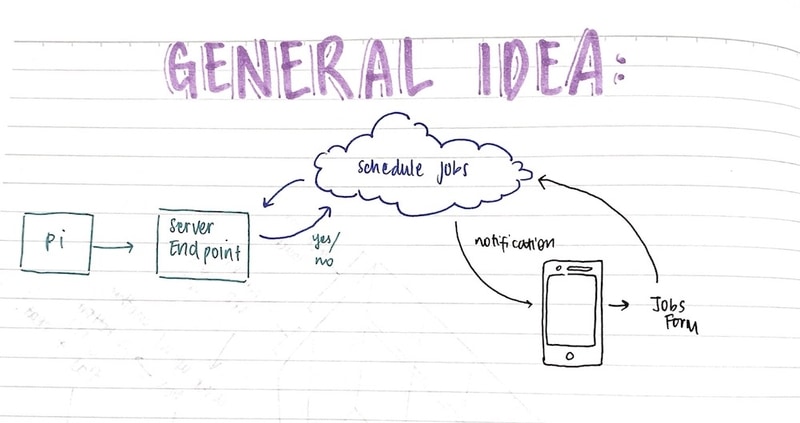 GENERAL IDEA:
schedule jobs
pi
server
Endpoint
yes/
no
notification
Jobs
Form